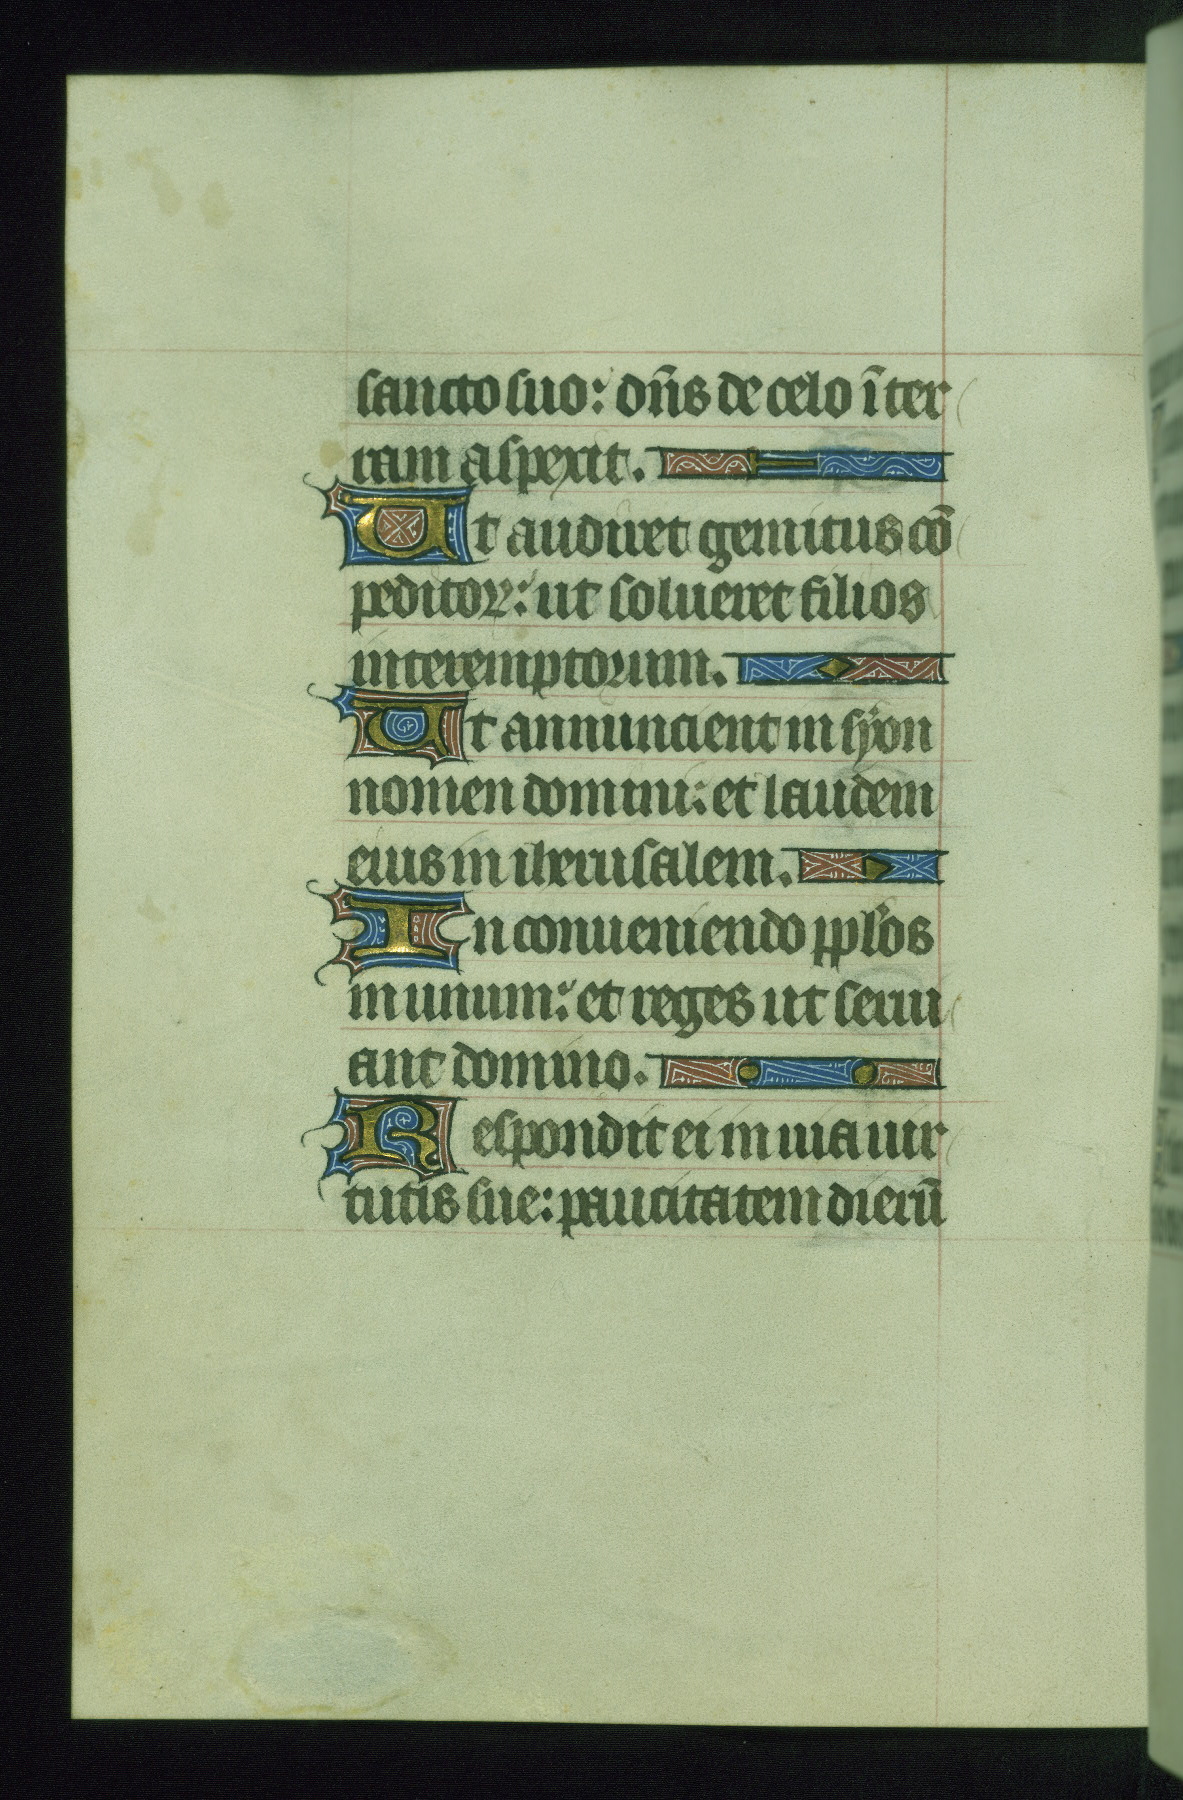 sancto suo: dn̄s de celo ī ter
ram aspexit.
Ut audiret gemitus cō
peditoꝝ: ut solueret filios
interemptorum.
Ut annuncient in syon
nomen domini: et laudem
eius in iherusalem.
In conueniendo ppl'os
in unum: et reges ut serui
ant domino.
Respondit ei in uia uir
tutis sue: paucitatem dierū